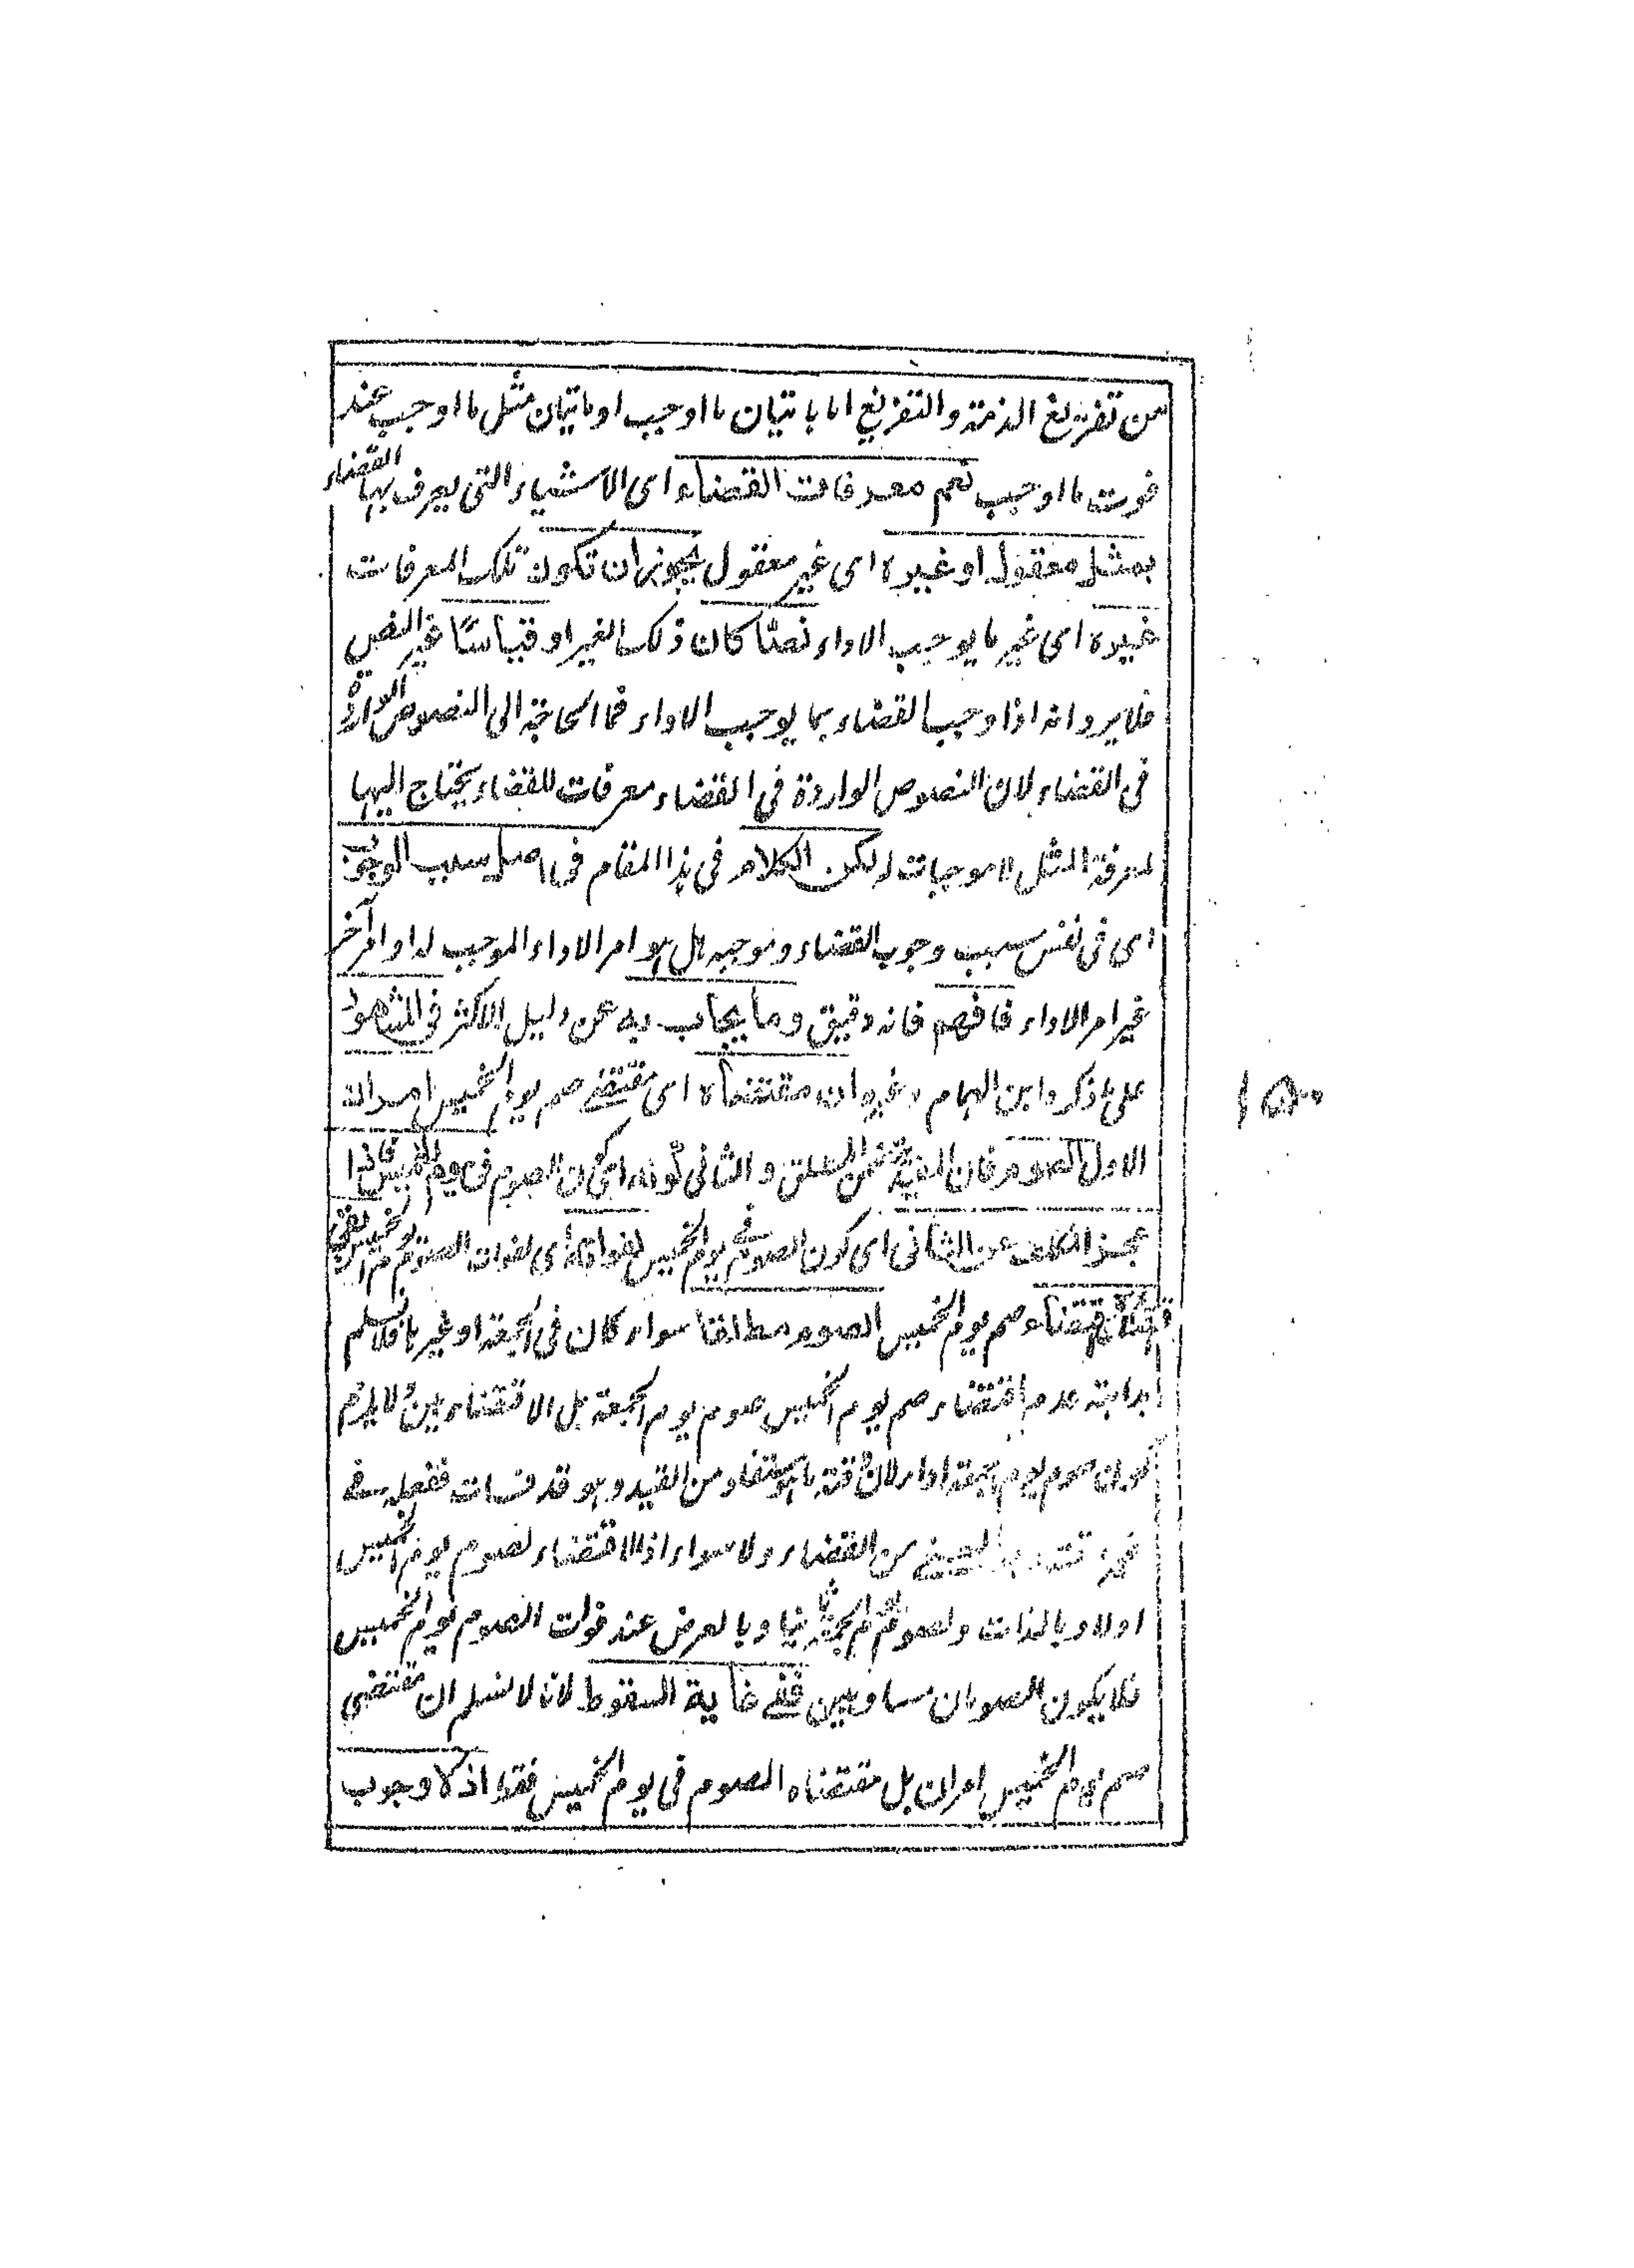 من تفريغ الذمة والتفريغ اما باتيان ما اوجب او باتيان مثل ما اوجب عند
فوت ما اوجب نعم معرفات القضاء اى الاشياء التى يعرف بها القضاء
بمثل معقول او غيره اى غير معقول يجوز ان تكون تلك المعرفات
غيره اى غير ما يوجب الاداء نصّا كان ذلك الغير او قياسًا غير النص
فلا يرد انه اذا وجب القضاء بما يوجب الاداء فما الحاجة الى النصوص الواردة
فى القضاء لان النصوص الواردة فى القضاء معرفات للقضاء يحتاج اليها
لمعرفة المثل لا موجبات له لكن الكلام فى هذا المقام فى اصل سبب الوجوب
اى فى نفس سبب وجوب القضاء وموجبه هل هو امر الاداء الموجب له او امر آخر
غير امر الاداء فافهم فانه دقيق وما يجاب به عن دليل الاكثر فى المشهور
على ما ذكره ابن الهمام وغيره ان مقتضاه اى مقتضے صم يوم الخميس امران
الاول الصوم فان المقيد يتضمن المطلق والثانى كونه اى كون الصوم فى يوم الخميس فاذا
عجز المكلف عن الثانى اى كون الصوم فے يوم الخميس لفواته اى لفوات الصوم يوم الخميس بقى
اقتضاء صم يوم الخميس الصوم مطلقا سواء كان فى الجمعة او غيرها فلا نسلم
بداهة عدم اقتضاء صم يوم الخميس صوم يوم الجمعة بل الاقتضاء بين ولا يلزم
كون صوم يوم الجمعة اداء لان وقته ما هو مستفاد من القيد وهو قد فات ففعله فے
غير وقته من القضاء ولا سواء اذ الاقتضاء لصوم يوم الخميس
اولا وبالذات ولصوم يوم الجمعة ثانيا وبالعرض عند فوات الصوم يوم الخميس
فلا يكون الصومان مساويين ففے غاية السقوط لانا لا نسلم ان مقتضى
صم يوم الخميس امران بل مقتضاه الصوم فى يوم الخميس فقط اذ لا وجوب